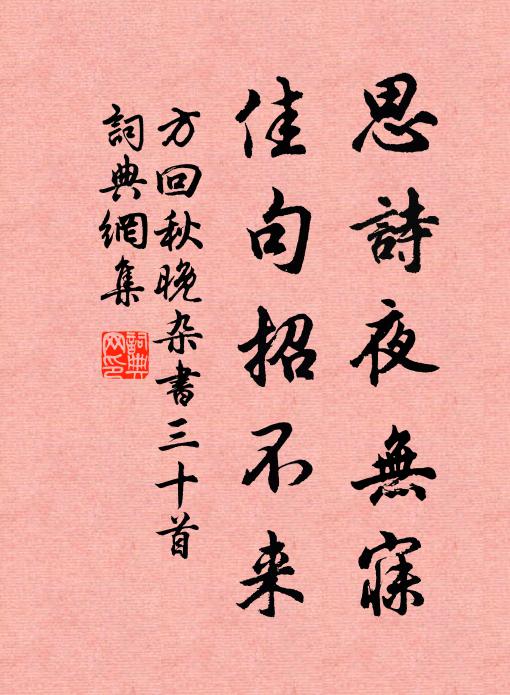 思詩夜無寐
佳句招不来
方回秋晚杂書三十首
詞典網集
詞典网印